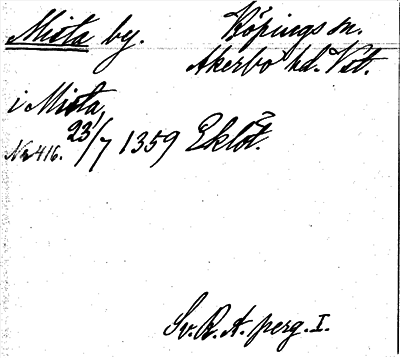 Mista by. Köpings sn.
Åkerbo hd. Vstm.
i Mista,
Nr 416. 23/7 1359 Eklöt.
Sv. R. A. perg. I.